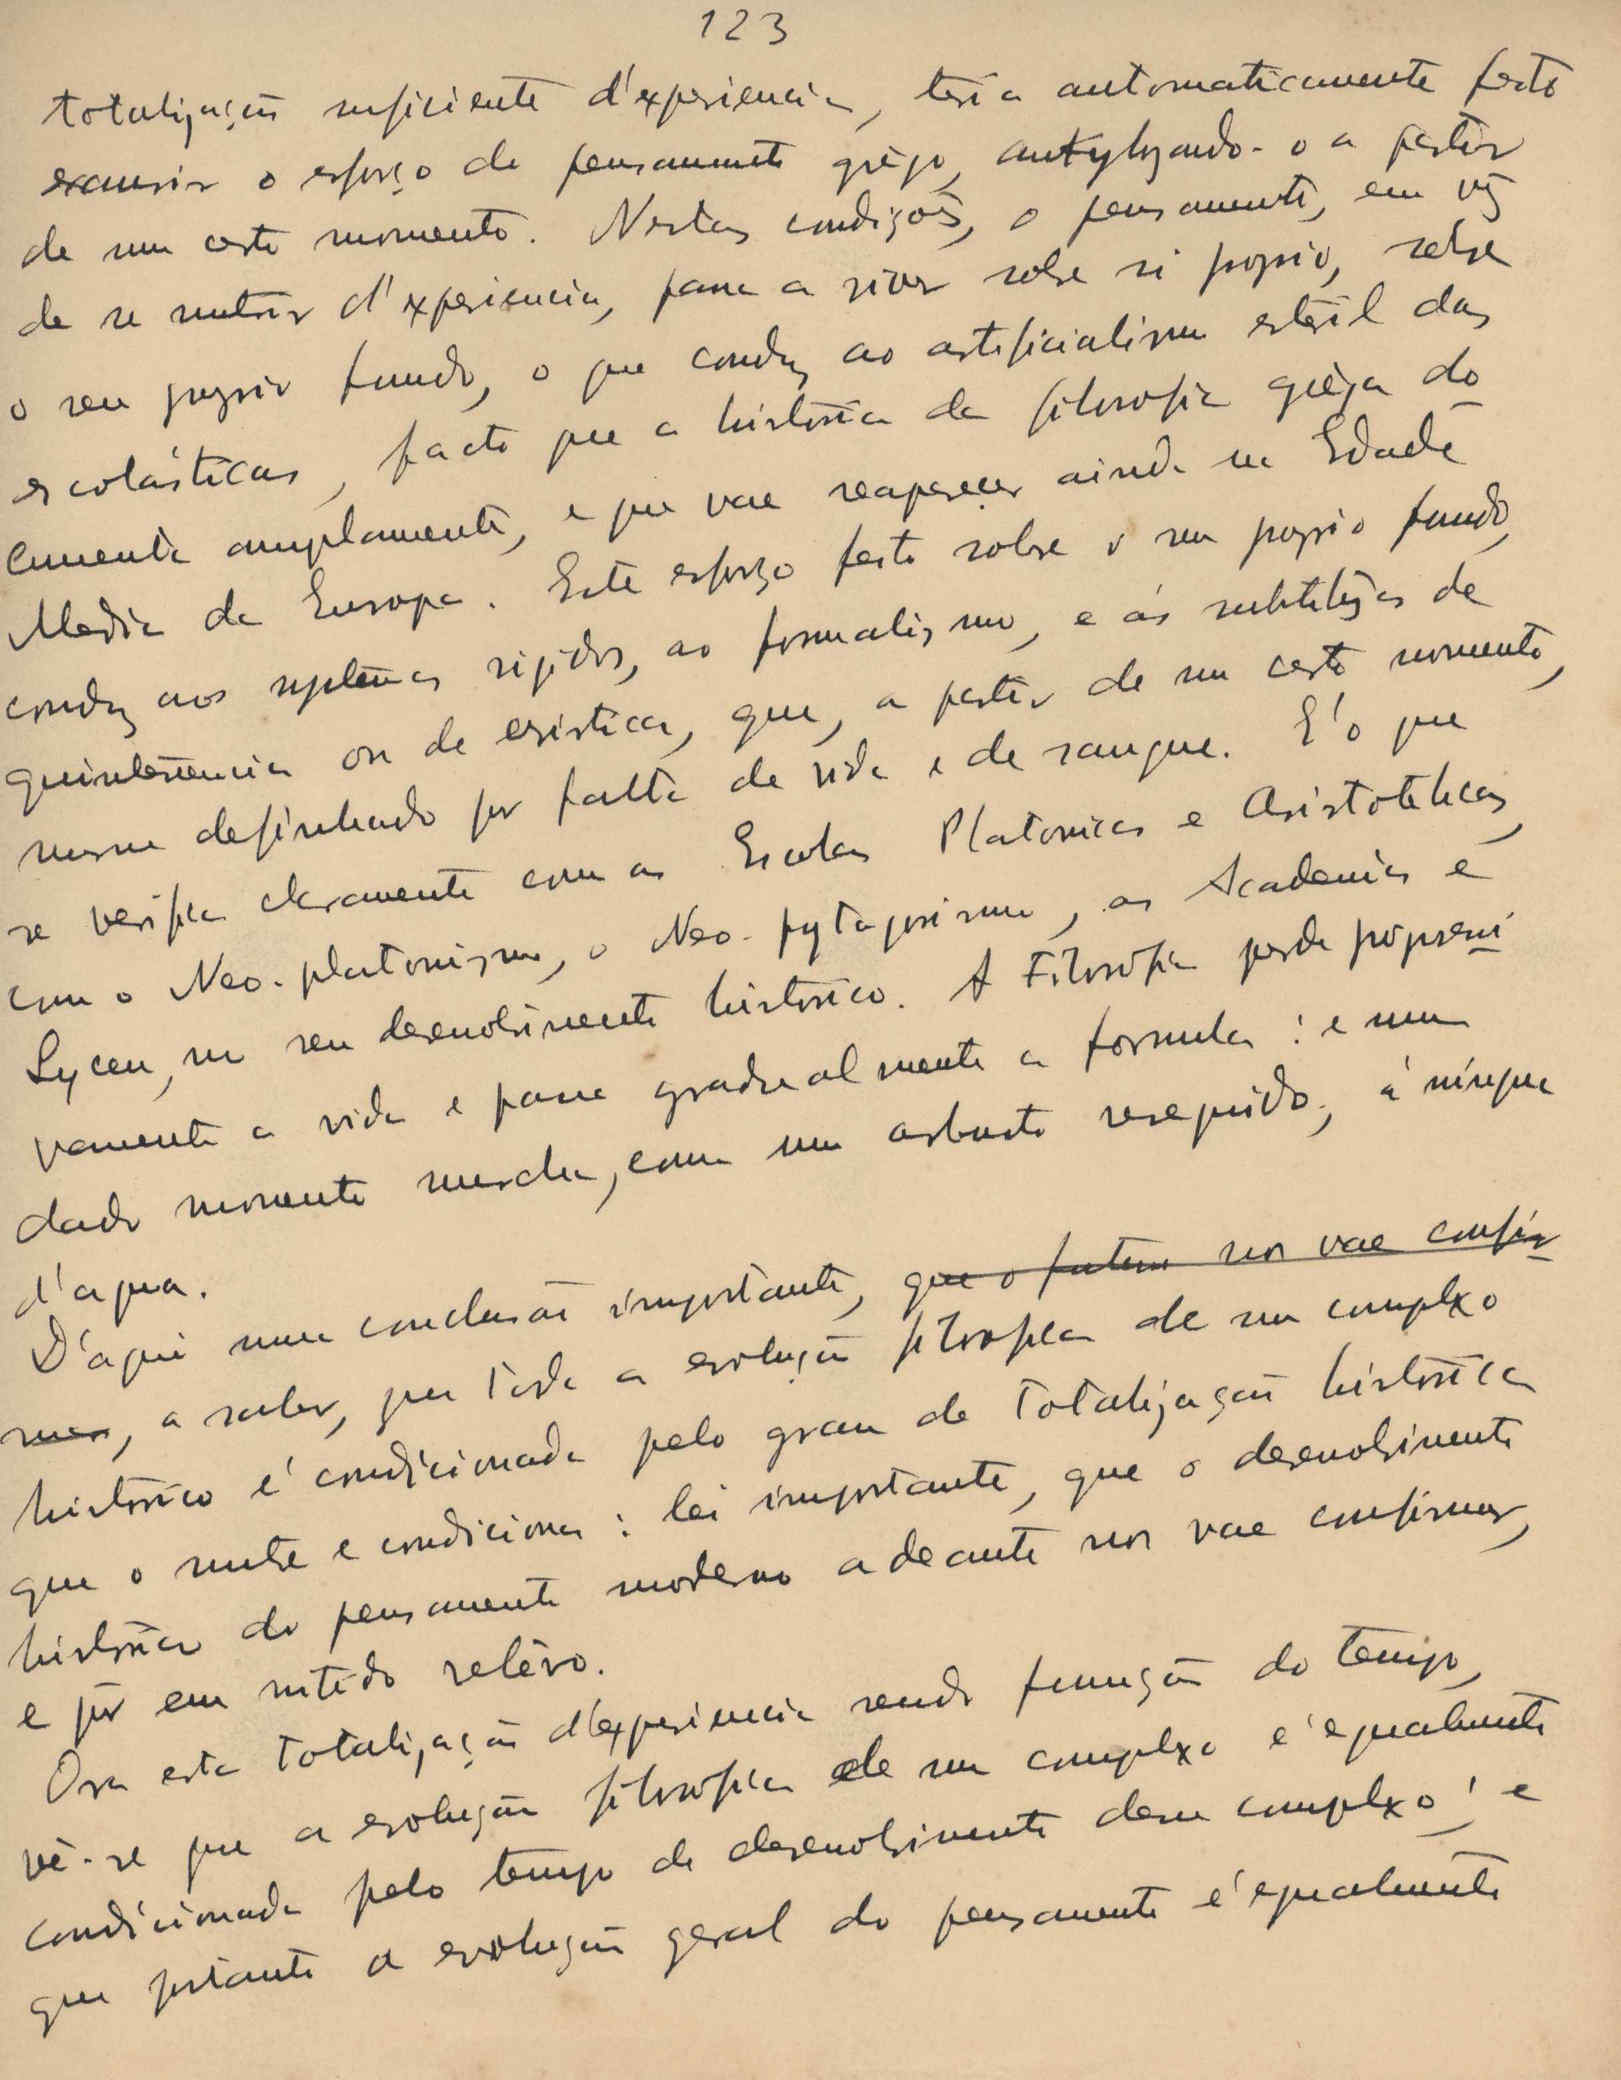 123
totalização suficiente d'experiencia, teria automaticamente feito
exaurir o esforço de pensamento grêgo, ankylosando-o a partir
de um certo momento. Nestas condições, o pensamento, em vez
de se nutrir d'experiencia, passa a viver sobre si proprio, sobre
o seu proprio fundo, o que conduz ao artificialismo esteril das
escolásticas, facto que a história da filosofia grêga do
cumenta amplamente, e que vae reaparecer ainda na Edade
Media da Europa. Este esforço feito sobre o seu proprio fundo,
conduz aos systemas rigidos, ao formalismo, e ás subtilêzas de
quintessencia ou de eristica, que, a partir de um certo momento,
morre definhado por falta de vida e de sangue. E' o que
se verifica claramente com as Escolas Platonicas e Aristotelicas,
com o Neo-platonismo, o Neo-pytagorismo, as Academias e
Lyceu, no seu desenvolvimento historico. A Filosofia perde progressi
vamente a vida e passa gradualmente a formula: e num
dado momento murcha, como um arbusto resequido, á mingua
d'agua.
D'aqui uma conclusão importante, que o futuro nos vae confir
mar, a saber, que toda a evolução filosofica de um complexo
historico é condicionada pelo grau de totalização histórica
que o nutre e condiciona: lei importante, que o desenvolvimento
histórico do pensamento moderno adeante nos vae confirmar,
e pôr em nitido relêvo.
Ora esta totalização d'experiencia sendo função do tempo,
vê-se que a evolução filosofica de um complexo é egualmente
condicionada pelo tempo de desenvolvimento desse complexo; e
que portanto a evolução geral do pensamento é egualmente